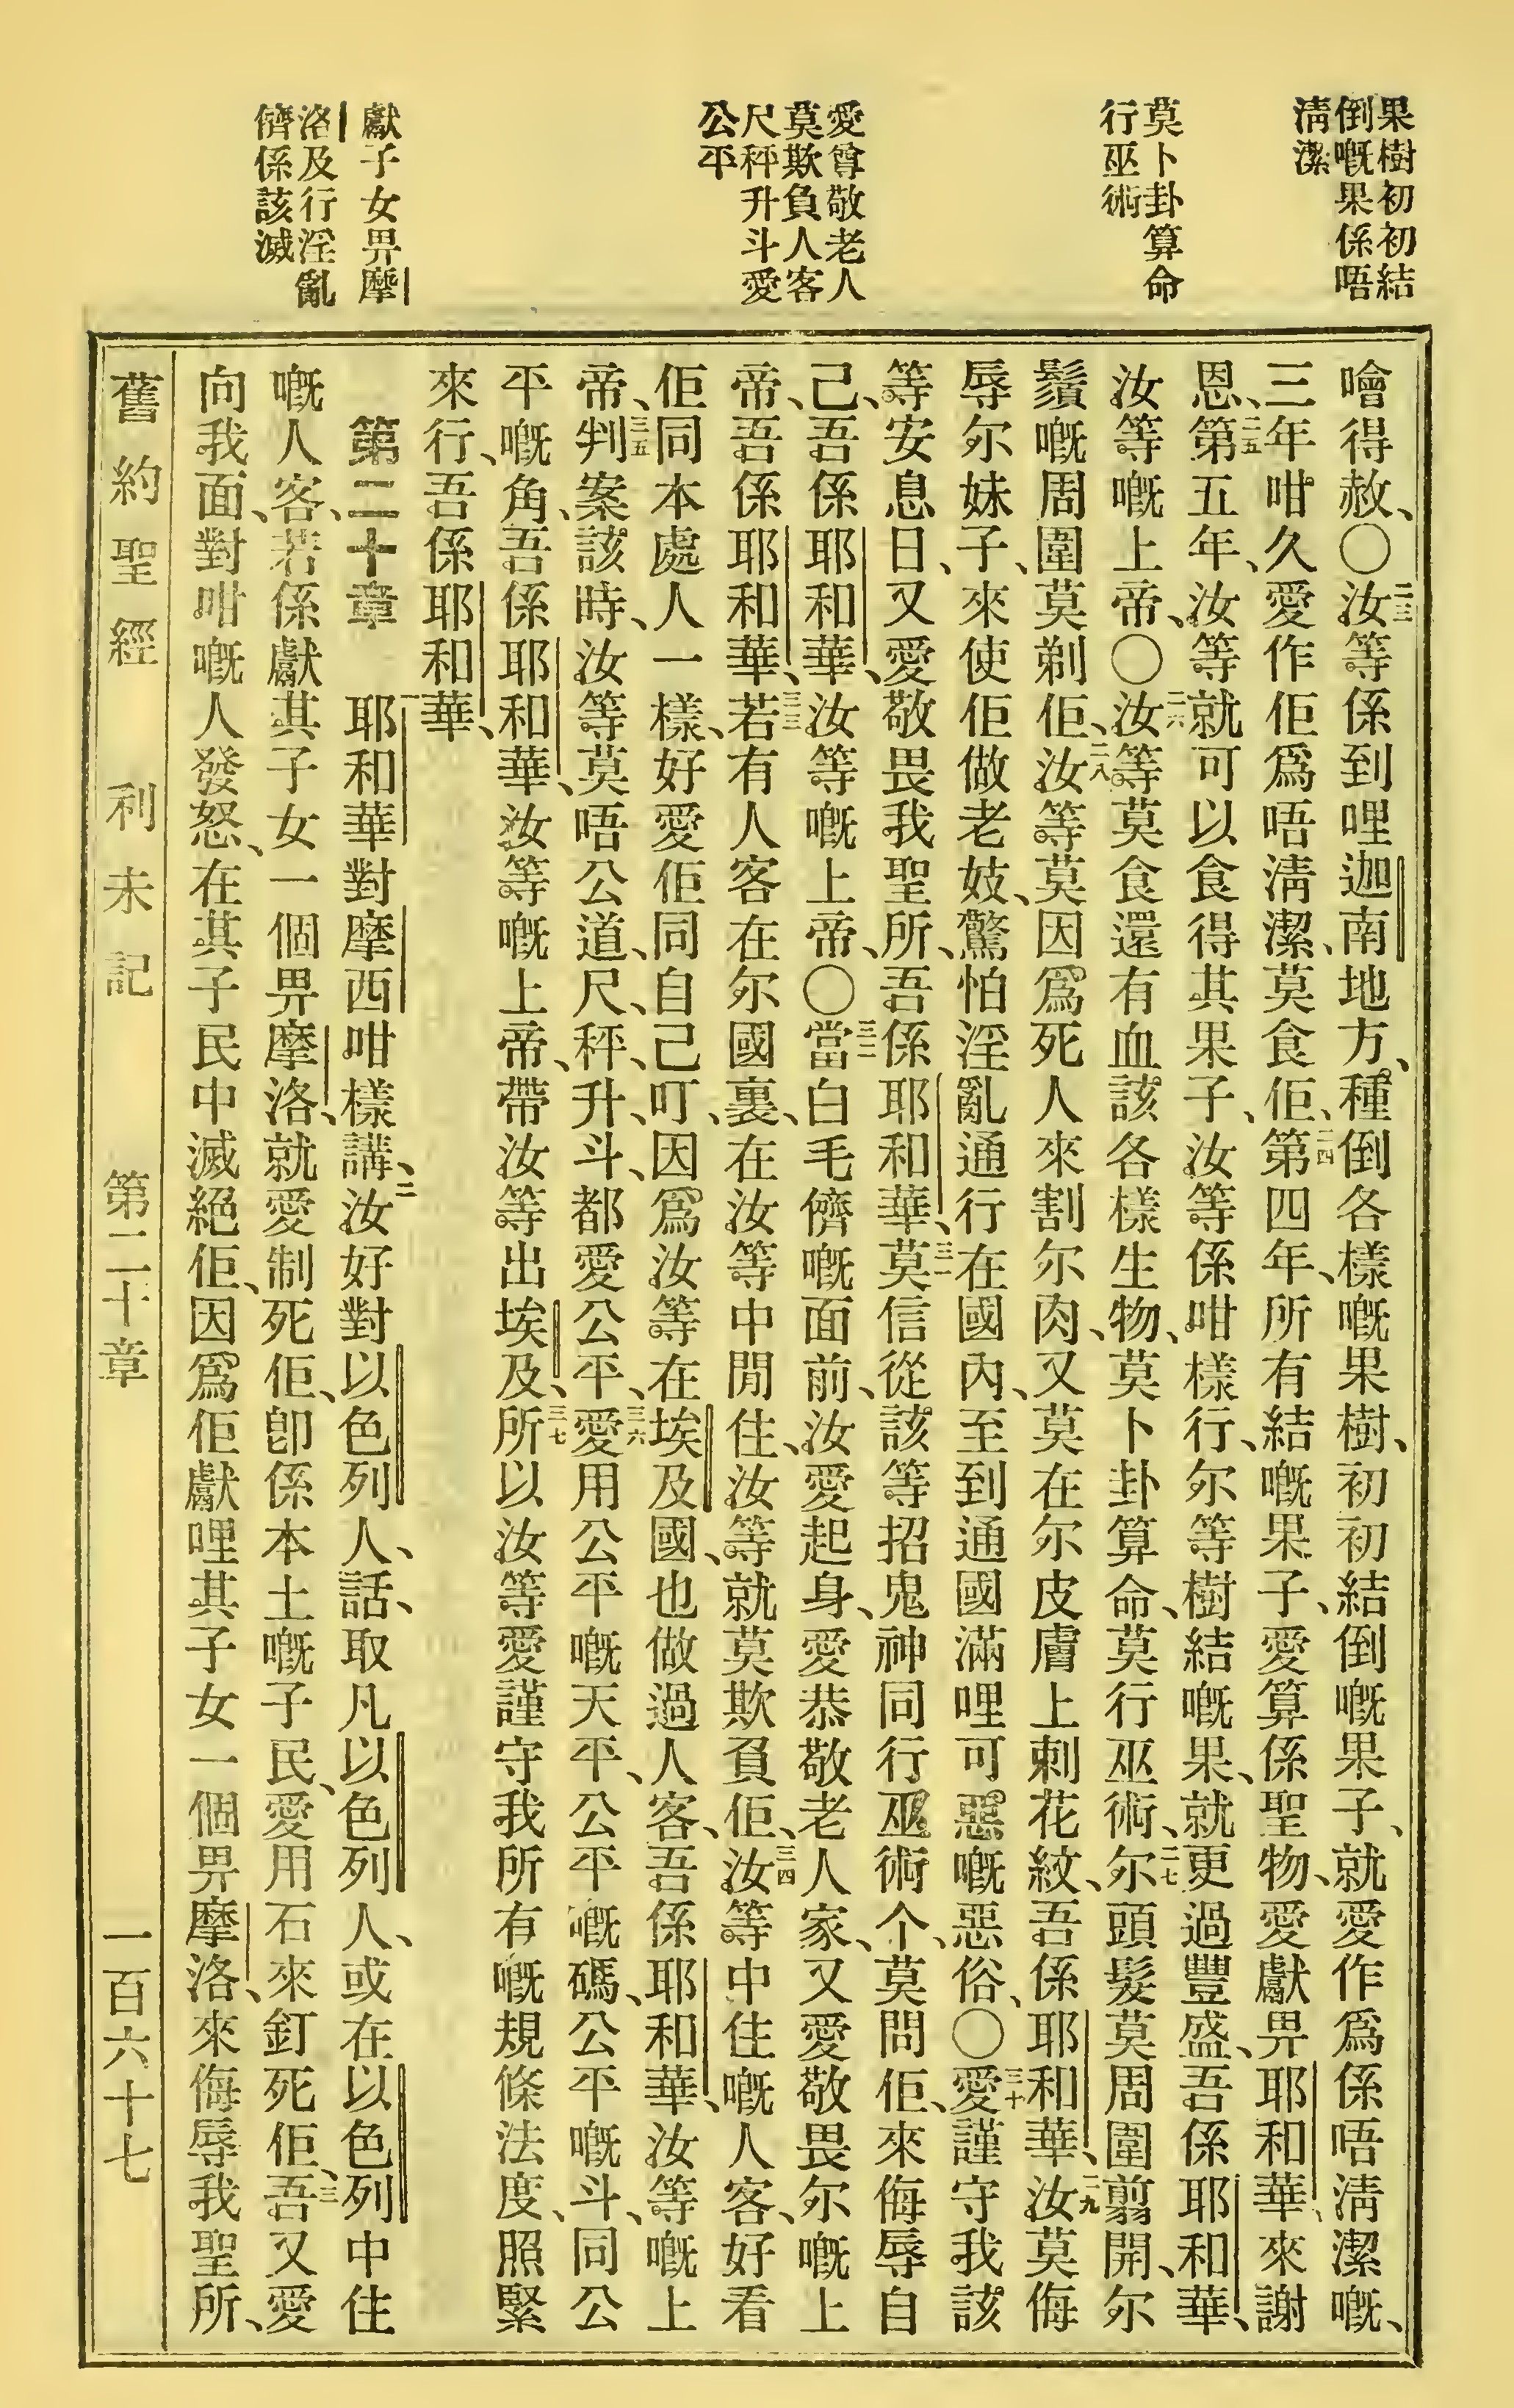 果樹初初結
倒嘅果係唔
淸潔
莫卜卦算命
行巫術
愛尊敬老人
莫欺負人客
尺秤升斗愛
公平
獻子女畀摩
洛及行淫亂
儕係該滅
噲得赦、〇二三汝等係到哩迦南地方、種倒各樣嘅果樹、初初結倒嘅果子、就愛作爲係唔淸潔嘅、
三年咁久愛作佢爲唔淸潔、莫食佢、二四第四年、所有結嘅果子、愛算係聖物、愛獻畀耶和華來謝
恩、二五第五年、汝等就可以食得其果子、汝等係咁樣行、尔等樹結嘅果、就更過豐盛、吾係耶和華、
汝等嘅上帝、〇二六汝等莫食還有血該各樣生物、莫卜卦算命、莫行巫術、二七尔頭髮莫周圍翦開、尔
鬚嘅周圍莫剃佢、二八汝等莫因爲死人來割尔肉、又莫在尔皮膚上刺花紋、吾係耶和華、二九汝莫侮
辱尔妹子、來使佢做老妓、驚怕淫亂通行在國內、至到通國滿哩可惡嘅惡俗、〇三十愛謹守我該
等安息日、又愛敬畏我聖所、吾係耶和華、三一莫信從該等招鬼神同行巫術个、莫問佢、來侮辱自
己、吾係耶和華、汝等嘅上帝、〇三二當白毛儕嘅面前、汝愛起身、愛恭敬老人家、又愛敬畏尔嘅上
帝、吾係耶和華、三三若有人客在尔國裏、在汝等中閒住、汝等就莫欺負佢、三四汝等中住嘅人客、好看
佢同本處人一樣、好愛佢同自己叮、因爲汝等在埃及國、也做過人客、吾係耶和華、汝等嘅上
帝、三五判案該時、汝等莫唔公道、尺、秤、升、斗、都愛公平、三六愛用公平嘅天平、公平嘅碼、公平嘅斗、同公
平嘅角、吾係耶和華、汝等嘅上帝、帶汝等出埃及、三七所以汝等愛謹守我所有嘅規條法度、照緊
來行、吾係耶和華、
第二十章 一耶和華對摩西咁樣講、二汝好對以色列人、話、取凡以色列人、或在以色列中住
嘅人客、若係獻其子女一個畀摩洛、就愛制死佢、卽係本土嘅子民、愛用石來釘死佢、三吾又愛
向我面、對咁嘅人發怒、在其子民中滅絕佢、因爲佢獻哩其子女一個畀摩洛、來侮辱我聖所、
舊約聖經 利未記 第二十章 一百六十七